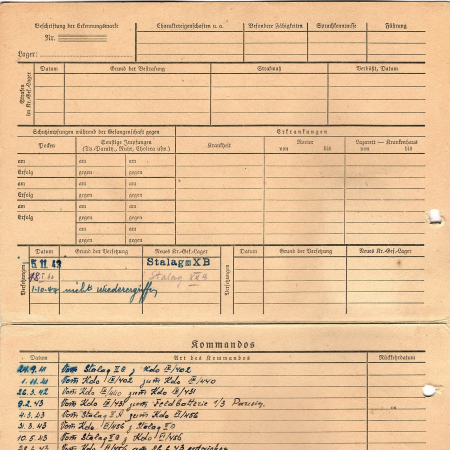 Beschriftung der Erkennungsmarke
Nr.
Lager:
Charaktereigenschaften u. a.
Besondere Fähigkeiten
Sprachkenntnisse
Führung
Strafen im Kr.-Gef.-Lager
Datum
Grund der Bestrafung
Strafmaß
Verbüßt, Datum
Schutzimpfungen während der Gefangenschaft gegen
Erkrankungen
Pocken
Sonstige Impfungen
(Ty. Paraty., Ruhr, Cholera usw.)
Krankheit
Revier
von
bis
Lazarett — Krankenhaus
von
bis
am
am
am
Erfolg
gegen
gegen
am
am
am
Erfolg
gegen
gegen
am
am
am
Erfolg
gegen
gegen
am
am
gegen
gegen
Versetzungen
Datum
Grund der Versetzung
Neues Kr.-Gef.-Lager
Versetzungen
Datum
Grund der Versetzung
Neues Kr.-Gef.-Lager
5.11.43
Stalag XB
Stalag
1.10.44 nicht wiederergriffen
Kommandos
Datum
Art des Kommandos
Rückkehrdatum
Vom Stalag
Kdo
/402
1.11.41 Vom Kdo
/402 zum Kdo
/440
26.3.42 Vom Kdo
/440 zum Kdo
/431
9.2.43 Vom Kdo
/431 zum
1/3
4.3.43 Vom Stalag
zum Kdo
/456
31.3.43 Vom Kdo
/456
Stalag
10.5.43 Vom Stalag
Kdo
/456
Vom Kdo
/456